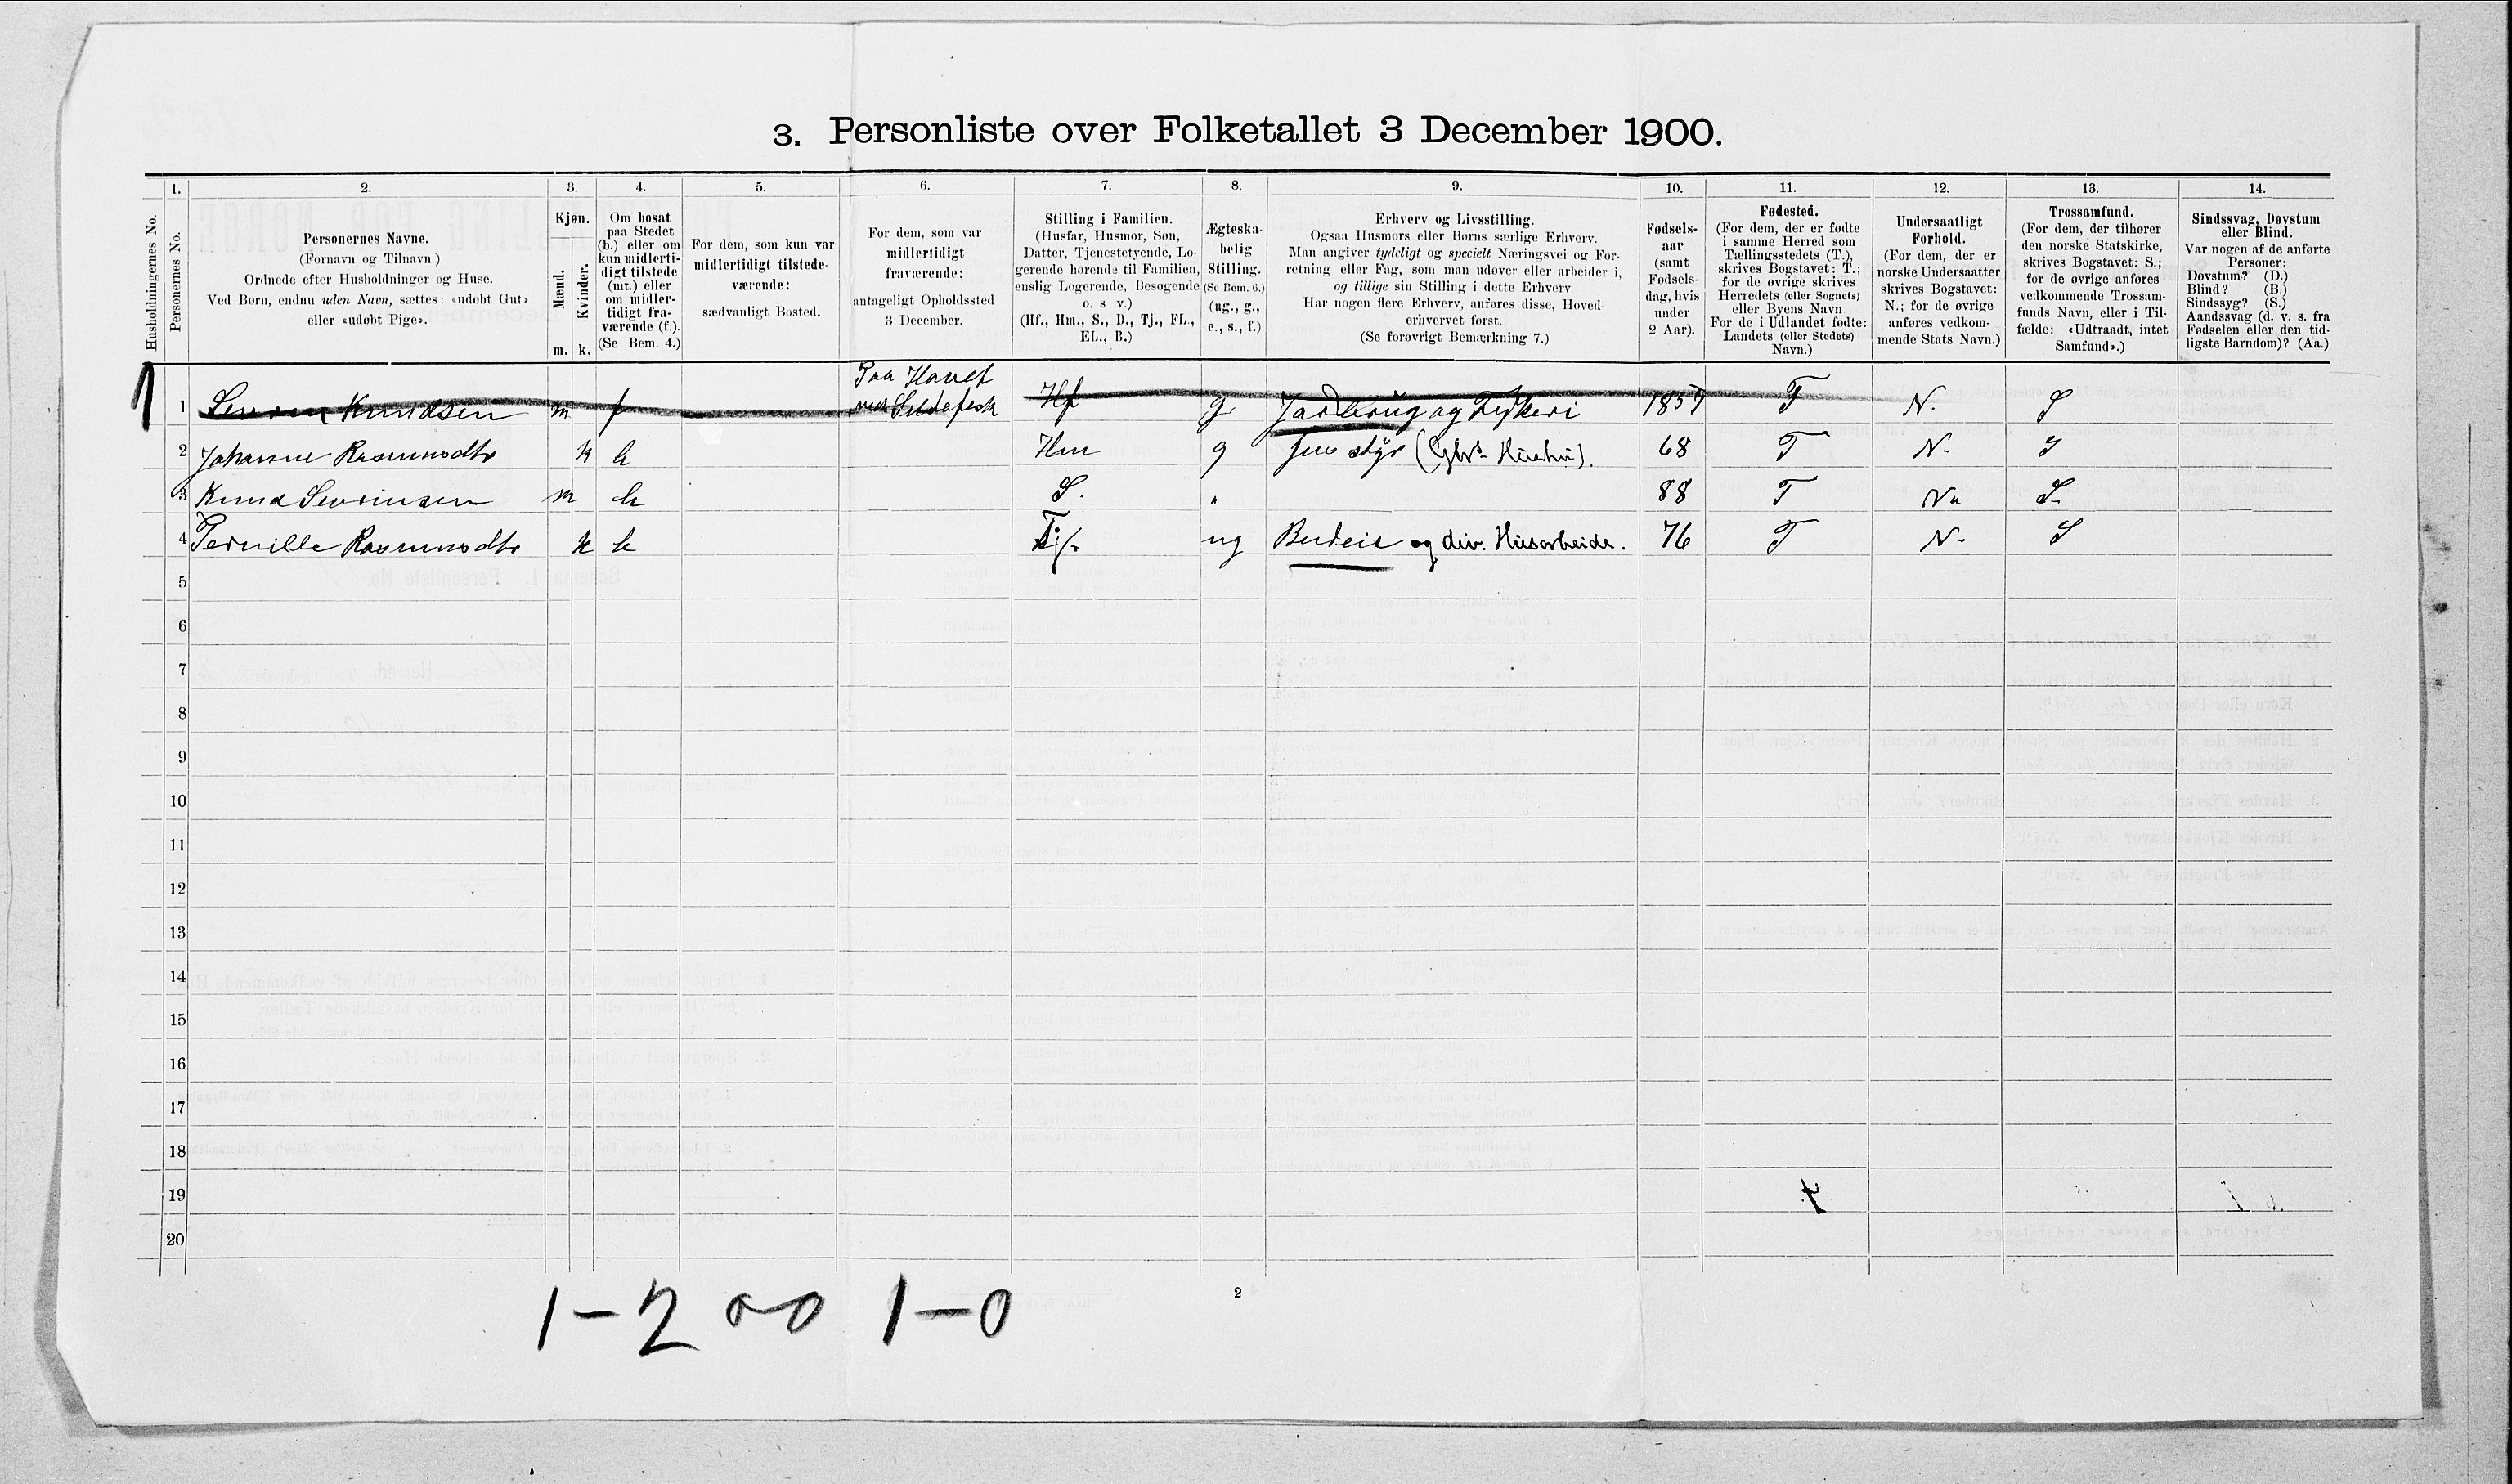 3. Personliste over Folketallet 3 December 1900.
1. 2. 3. 4. 5. 6. 7. 8. 9. 10. 11. 12. 13. 14.
Husholdningernes No.
Personernes No.
Personernes Navne.
(Fornavn og Tilnavn)
Ordnede efter Husholdninger og Huse.
Ved Børn, endnu uden Navn, sættes: «udøbt Gut»
eller «udøbt Pige».
Kjøn.
Mænd.
Kvinder.
m. k.
Om bosat
paa Stedet
(b.) eller om
kun midlerti-
digt tilstede
(mt.) eller
om midler-
tidigt fra-
værende (f.).
(Se Bem. 4.)
For dem, som kun var
midlertidigt tilstede-
værende:
sædvanligt Bosted.
For dem, som var
midlertidigt
fraværende:
antageligt Opholdssted
3 December.
Stilling i Familien.
(Husfar, Husmor, Søn,
Datter, Tjenestetyende, Lo-
gerende hørende til Familien,
enslig Logerende, Besøgende
o. s v.)
(Hf., Hm., S., D., Tj., FL.,
EL., B.)
Ægteska-
belig
Stilling.
(Se Bem. 6.)
(ug., g.,
e., s., f.)
Erhverv og Livsstilling.
Ogsaa Husmors eller Børns særlige Erhverv.
Man angiver tydeligt og specielt Næringsvei og For-
retning eller Fag, som man udøver eller arbeider i,
og tillige sin Stilling i dette Erhverv
Har nogen flere Erhverv, anføres disse, Hoved-
erhvervet først.
(Se forøvrigt Bemærkning 7.)
Fødsels-
aar
(samt
Fødsels-
dag, hvis
under
2 Aar).
Fødested.
(For dem, der er fødte
i samme Herred som
Tællingsstedets (T.),
skrives Bogstavet: T.;
for de øvrige skrives
Herredets (eller Sognets)
eller Byens Navn
For de i Udlandet fødte:
Landets (eller Stedets)
Navn.)
Undersaatligt
Forhold.
(For dem, der er
norske Undersaatter
skrives Bogstavet:
N.; for de øvrige
anføres vedkom-
mende Stats Navn.)
Trossamfund.
(For dem, der tilhører
den norske Statskirke,
skrives Bogstavet: S.;
for de øvrige anføres
vedkommende Trossam-
funds Navn, eller i Til-
fælde: «Udtraadt, intet
Samfund».)
Sindssvag, Døvstum
eller Blind.
Var nogen af de anførte
Personer:
Døvstum? (D.)
Blind? (B.)
Sindssyg? (S.)
Aandssvag (d. v. s. fra
Fødselen eller den tid-
ligste Barndom)? (Aa.)
Paa Havet
1 1 Knudsen m f med Sildefisk Hf g. Jordbrug og Fiskeri T N. S
2 Johanne Rasmusdtr k b Hm g Hustru). 68 T N. S
3 Knud Sevrinsen m b S. " 88 T N. S.
4 Pernille Rasmusdtr k b Tj. ug Budeie og div. Husarbeide. 76 T N. S
5
6
7
8
9
10
11
12
13
14
15
16
17
18
19
20
1-2 1-0
2